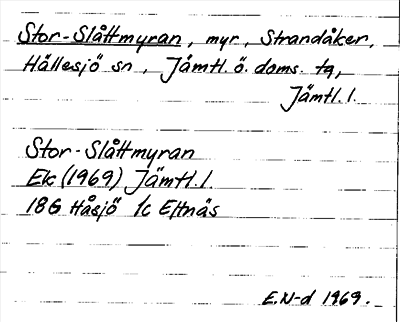 Stor-Slåttmyran, myr, Strandåker,
Hällesjö sn, Jämtl. ö. doms. tg,
Jämtl. l.
Stor-Slåttmyran
Ek (1969) Jämtl. l.
18G Håsjö 1c Eltnäs
E.N-d 1969.